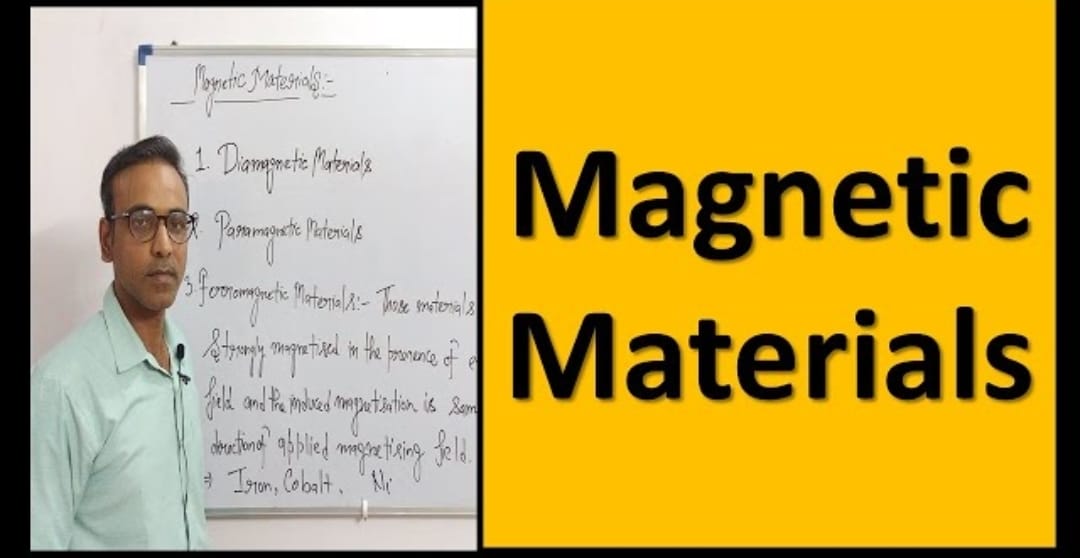 Magnetic Materials:-
1. Diamagnetic Materials
2. Paramagnetic Materials
3. Ferromagnetic Materials:- Those materials
Strongly magnetised in the presence of
field and the induced magnetisation is Sam
direction of applied magnetising field.
⇒ Iron, Cobalt, Ni
Magnetic
Materials